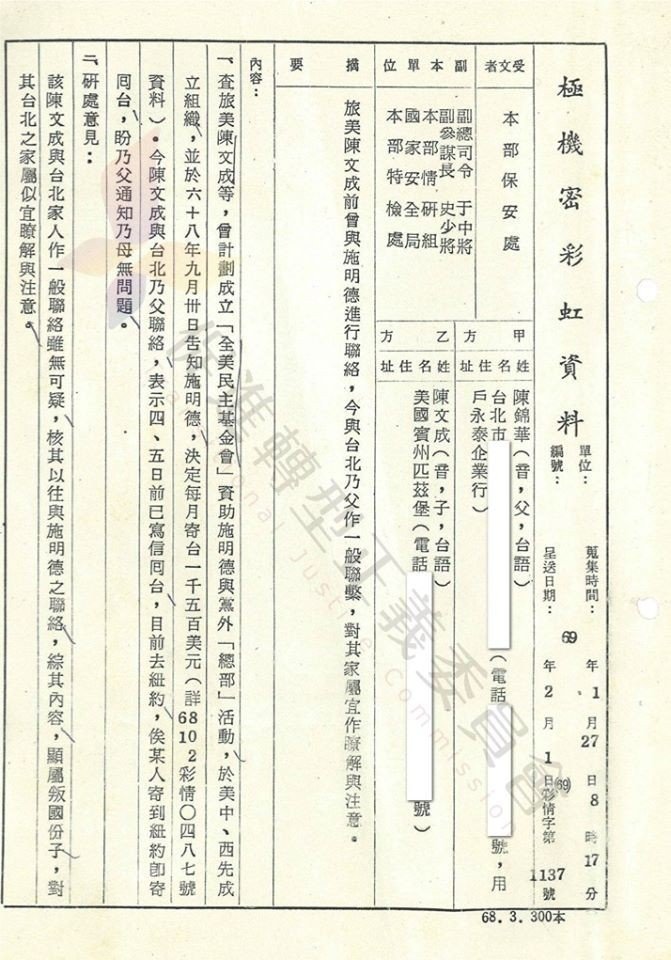 極機密彩虹資料
單位：
編號：
蒐集時間：69年1月27日8時17分
呈送日期：69年2月1日(69)彩情字第1137號
受文者
本部保安處
副本單位
副總司令 于中將
副參謀長 史少將
本部情研組
國家安全局
本部特檢處
甲方
姓名住址
陳錦華(音，父，台語)
台北市 (電話 號，用
戶永泰企業行)
乙方
姓名住址
陳文成(音，子，台語)
美國賓州匹茲堡(電話 號)
摘要
旅美陳文成前曾與施明德進行聯絡，今與台北乃父作一般聯繫，對其家屬宜作瞭解與注意。
內容：
一、查旅美陳文成等，曾計劃成立「全美民主基金會」資助施明德與黨外「總部」活動，於美中、西先成
立組織，並於六十八年九月卅日告知施明德，決定每月寄台一千五百美元(詳68102彩情〇四八七號
資料)。今陳文成與台北乃父聯絡，表示四、五日前已寫信回台，目前去紐約，俟某人寄到紐約卽寄
回台，盼乃父通知乃母無問題。
二、研處意見：
該陳文成與台北家人作一般聯絡雖無可疑，核其以往與施明德之聯絡，綜其內容，顯屬叛國份子，對
其台北之家屬似宜瞭解與注意。
68.3.300本
促進轉型正義委員會
Transitional Justice Commission